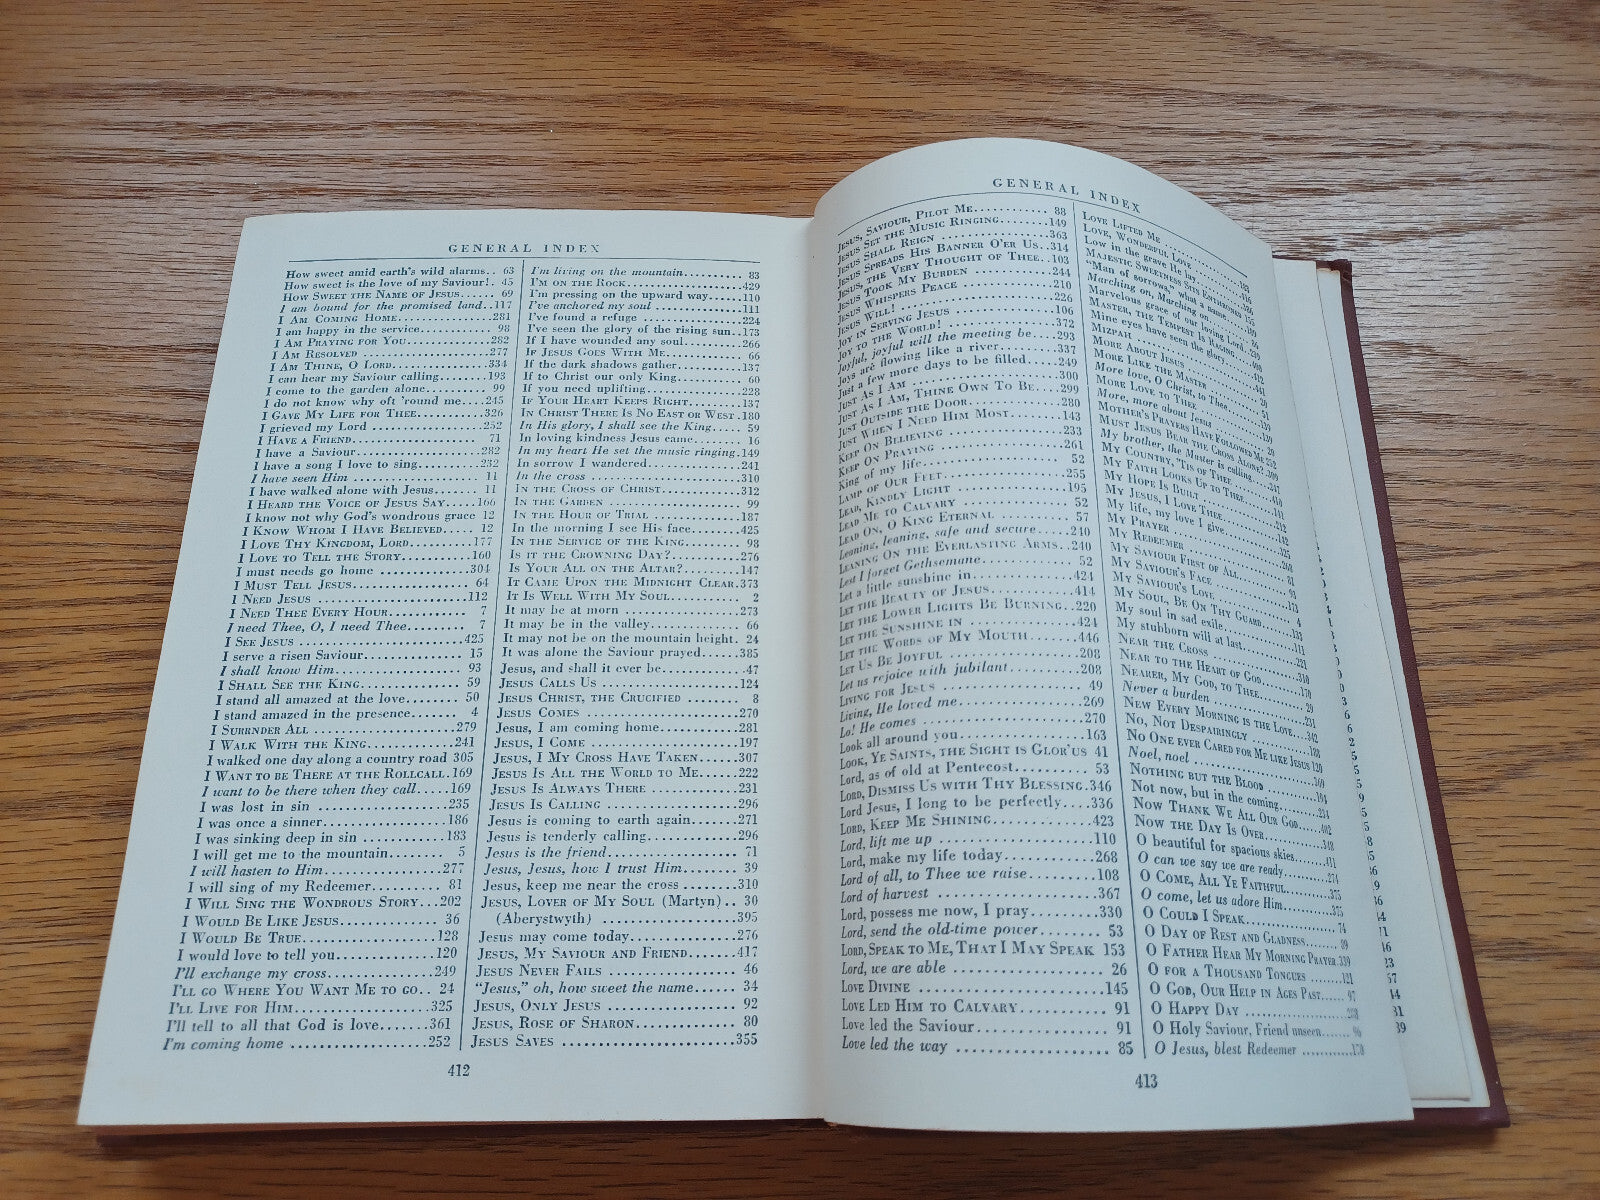 GENERAL INDEX
How sweet amid earth's wild alarms.. 63
How sweet is the love of my Saviour!. 45
How Sweet the Name of Jesus...... 69
I am bound for the promised land..117
I Am Coming Home...................281
I am happy in the service............ 98
I Am Praying for You................282
I Am Resolved ......................277
I Am Thine, O Lord..................334
I can hear my Saviour calling........193
I come to the garden alone.......... 99
I do not know why oft 'round me....245
I Gave My Life for Thee............326
I grieved my Lord ...................252
I Have a Friend...................... 71
I have a Saviour.....................282
I have a song I love to sing..........232
I have seen Him ..................... 11
I have walked alone with Jesus....... 11
I Heard the Voice of Jesus Say.....166
I know not why God's wondrous grace 12
I Know Whom I Have Believed...... 12
I Love Thy Kingdom, Lord.........177
I Love to Tell the Story...........160
I must needs go home ..............304
I Must Tell Jesus................... 64
I Need Jesus .......................112
I Need Thee Every Hour............ 7
I need Thee, O, I need Thee......... 7
I See Jesus ........................425
I serve a risen Saviour............... 15
I shall know Him.................... 93
I Shall See the King................ 59
I stand all amazed at the love........ 50
I stand amazed in the presence...... 4
I Surrnder All .....................279
I Walk With the King..............241
I walked one day along a country road 305
I Want to be There at the Rollcall.169
I want to be there when they call.....169
I was lost in sin ....................235
I was once a sinner..................186
I was sinking deep in sin ...........183
I will get me to the mountain........ 5
I will hasten to Him.................277
I will sing of my Redeemer.......... 81
I Will Sing the Wondrous Story...202
I Would Be Like Jesus............. 36
I Would Be True...................128
I would love to tell you..............120
I'll exchange my cross...............249
I'll go Where You Want Me to go.. 24
I'll Live for Him...................325
I'll tell to all that God is love........361
I'm coming home ...................252
I'm living on the mountain.......... 83
I'm on the Rock...................429
I'm pressing on the upward way.....110
I've anchored my soul ..............111
I've found a refuge .................224
I've seen the glory of the rising sun..173
If I have wounded any soul..........266
If Jesus Goes With Me............. 66
If the dark shadows gather..........137
If to Christ our only King........... 60
If you need uplifting................228
If Your Heart Keeps Right........137
In Christ There Is No East or West.180
In His glory, I shall see the King.... 59
In loving kindness Jesus came....... 16
In my heart He set the music ringing.149
In sorrow I wandered................241
In the cross ........................310
In the Cross of Christ.............312
In the Garden ..................... 99
In the Hour of Trial ..............187
In the morning I see His face........425
In the Service of the King......... 98
Is it the Crowning Day?...........276
Is Your All on the Altar?.........147
It Came Upon the Midnight Clear.373
It Is Well With My Soul........... 2
It may be at morn ..................273
It may be in the valley.............. 66
It may not be on the mountain height. 24
It was alone the Saviour prayed......385
Jesus, and shall it ever be............ 47
Jesus Calls Us .....................124
Jesus Christ, the Crucified ....... 8
Jesus Comes .......................270
Jesus, I am coming home............281
Jesus, I Come .....................197
Jesus, I My Cross Have Taken.....307
Jesus Is All the World to Me......222
Jesus Is Always There ............231
Jesus Is Calling ...................296
Jesus is coming to earth again.......271
Jesus is tenderly calling.............296
Jesus is the friend................... 71
Jesus, Jesus, how I trust Him........ 39
Jesus, keep me near the cross .......310
Jesus, Lover of My Soul (Martyn).. 30
(Aberystwyth) ...................395
Jesus may come today...............276
Jesus, My Saviour and Friend......417
Jesus Never Fails ................. 46
"Jesus," oh, how sweet the name..... 34
Jesus, Only Jesus ................. 92
Jesus, Rose of Sharon............. 80
Jesus Saves .......................355
412
GENERAL INDEX
Jesus, Saviour, Pilot Me........... 88
Jesus Set the Music Ringing.......149
Jesus Shall Reign .................363
Jesus Spreads His Banner O'er Us..314
Jesus, the Very Thought of Thee..103
Jesus Took My Burden ............244
Jesus Whispers Peace .............210
Jesus Will! .......................226
Joy in Serving Jesus ..............106
Joy to the World! .................372
Joyful, joyful will the meeting be....293
Joys are flowing like a river.........337
Just a few more days to be filled.....249
Just As I Am ......................300
Just As I Am, Thine Own To Be...299
Just Outside the Door.............280
Just When I Need Him Most......143
Keep On Believing ................233
Keep On Praying .................261
King of my life..................... 52
Lamp of Our Feet.................255
Lead, Kindly Light ...............195
Lead Me to Calvary .............. 52
Lead On, O King Eternal ......... 57
Leaning, leaning, safe and secure.....240
Leaning On the Everlasting Arms..240
Lest I forget Gethsemane............ 52
Let a little sunshine in..............424
Let the Beauty of Jesus...........414
Let the Lower Lights Be Burning..220
Let the Sunshine in ..............424
Let the Words of My Mouth ......446
Let Us Be Joyful .................208
Let us rejoice with jubilant..........208
Living for Jesus .................. 49
Living, He loved me................269
Lo! He comes .....................270
Look all around you................163
Look, Ye Saints, the Sight is Glor'us 41
Lord, as of old at Pentecost.......... 53
Lord, Dismiss Us with Thy Blessing.346
Lord Jesus, I long to be perfectly....336
Lord, Keep Me Shining............423
Lord, lift me up ....................110
Lord, make my life today...........268
Lord of all, to Thee we raise.........108
Lord of harvest ....................367
Lord, possess me now, I pray........330
Lord, send the old-time power....... 53
Lord, Speak to Me, That I May Speak 153
Lord, we are able ................... 26
Love Divine .......................145
Love Led Him to Calvary ......... 91
Love led the Saviour................ 91
Love led the way ................... 85
Love Lifted Me
Love, Wonderful Love
Low in the grave He lay
Majestic Sweetness Sits Enthroned
"Man of sorrows," what a name
Marching on, Marching on
Marvelous grace of our loving Lord
Master, the Tempest Is Raging
Mine eyes have seen the glory
Mizpah
More About Jesus
More Like the Master
More love, O Christ, to Thee
More Love to Thee
More, more about Jesus
Mother's Prayers Have Followed Me
Must Jesus Bear the Cross Alone?
My brother, the Master is calling
My Country, 'Tis of Thee
My Faith Looks Up to Thee
My Hope Is Built
My Jesus, I Love Thee
My life, my love I give
My Prayer
My Redeemer
My Saviour First of All
My Saviour's Face
My Saviour's Love
My Soul, Be On Thy Guard
My soul in sad exile
My stubborn will at last
Near the Cross
Near to the Heart of God
Nearer, My God, to Thee
Never a burden
New Every Morning is the Love...342
No, Not Despairingly
No One ever Cared for Me Like Jesus 120
Noel, noel
Nothing but the Blood
Not now, but in the coming.........234
Now Thank We All Our God.......402
Now the Day Is Over..............348
O beautiful for spacious skies........411
O can we say we are ready..........274
O Come, All Ye Faithful..........375
O come, let us adore Him..........375
O Could I Speak.................. 74
O Day of Rest and Gladness....... 89
O Father Hear My Morning Prayer.339
O for a Thousand Tongues .......121
O God, Our Help in Ages Past...... 97
O Happy Day
O Holy Saviour, Friend unseen
O Jesus, blest Redeemer
413